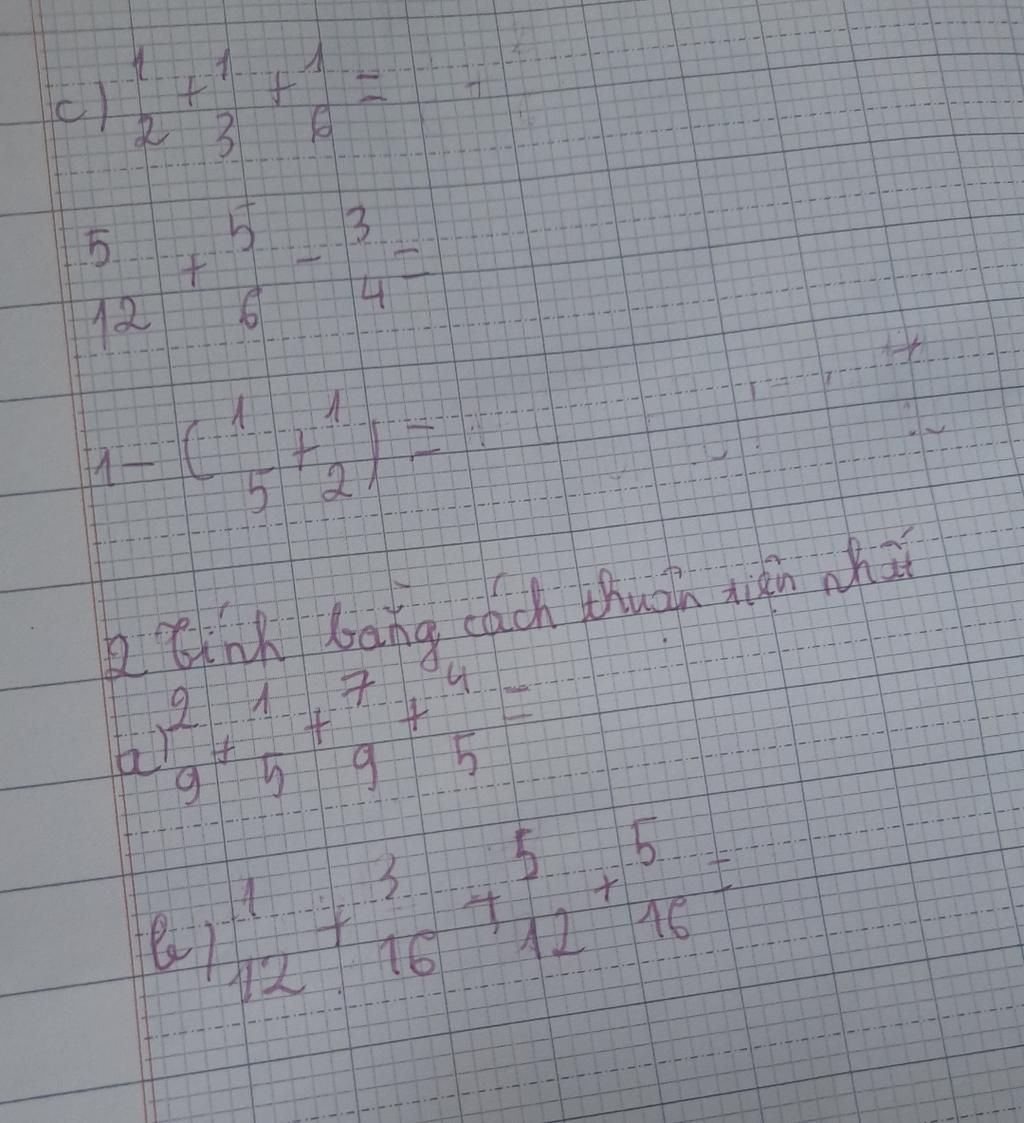 c) 1/2 + 1/3 + 1/6 =
5/12 + 5/6 - 3/4 =
1 - (1/5 + 1/2) =
2 Tính bằng cách thuận tiện nhất
a) 2/9 + 1/5 + 7/9 + 4/5 =
b) 1/12 + 3/16 + 5/12 + 5/16 =